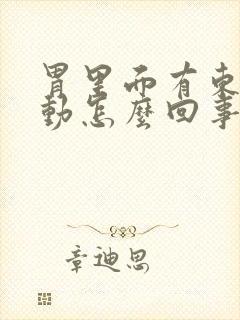 胃里面有東
動怎麼回事
章迪思